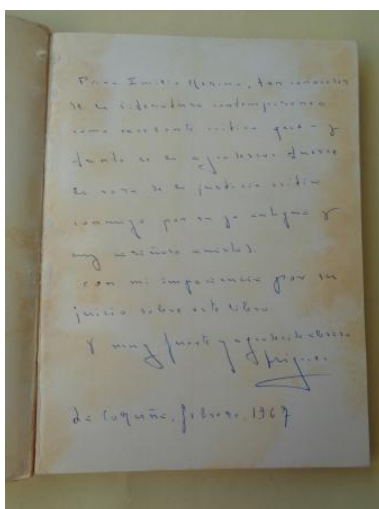 Para Emilio Merino, tan conocedor
de la literatura contemporánea
como excelente crítico que - y
tanto se lo agradezco
justicia crítica
conmigo por su ya antigua y
muy cariñosa amistad.
con mi impaciencia por su
juicio sobre este libro.
y muy fuerte y agradecido abrazo
La Coruña, febrero, 1967